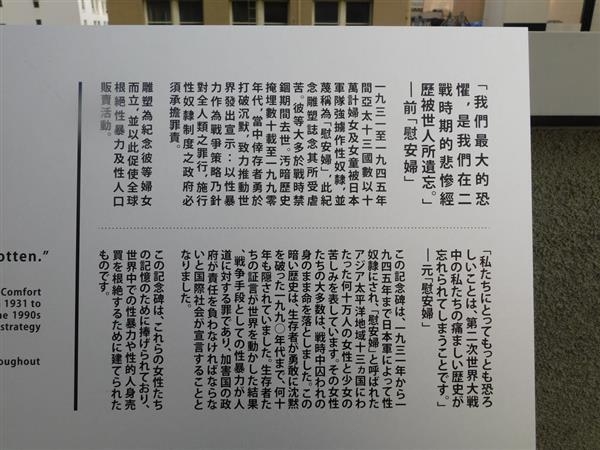 「我們最大的恐
懼，是我們在二
戰時期的悲慘經
歷被世人所遺忘。」
—前「慰安婦」
一九三一至一九四五年
間亞太十三國數以十
萬計婦女及女童被日本
軍隊強擄作性奴隸，並
蔑稱為「慰安婦」，此紀
念雕塑誌念其所受虐
苦。彼等大多於戰時禁
錮期間去世。汚暗歷史
掩埋數十載至一九九零
年代，當中倖存者勇於
打破沉默，致力推動世
界發出宣示：以性暴
力作為戰爭策略乃針
對全人類之罪行，施行
性奴隸制度之政府必
須承擔罪責。
雕塑為紀念彼等婦女
而立，並以此促使全球
根絕性暴力及性人口
販賣活動。
「私たちにとってもっとも恐ろ
しいことは、第二次世界大戦
中の私たちの痛ましい歴史が
忘れられてしまうことです。」
—元「慰安婦」
この記念碑は、一九三一年から一
九四五年まで日本軍によって性
奴隷にされ、「慰安婦」と呼ばれた
アジア太平洋地域十三ヵ国にわ
たった何十万人の女性と少女の
苦しみを表しています。その女性
たちの大多数は、戦時中囚われの
身のまま命を落としました。この
暗い歴史は、生存者が勇敢に沈黙
を破った一九九〇年代まで、何十
年も隠されていました。生存者た
ちの証言が世界を動かした結果
、戦争手段としての性暴力が人
道に対する罪であり、加害国の政
府が責任を負わなければならな
いと国際社会が宣言することと
なりました。
この記念碑は、これらの女性たち
の記憶のために捧げられており、
世界中での性暴力や性的人身売
買を根絶するために建てられた
ものです。
otten.”
Comfort
1931 to
e 1990s
strategy
oughout